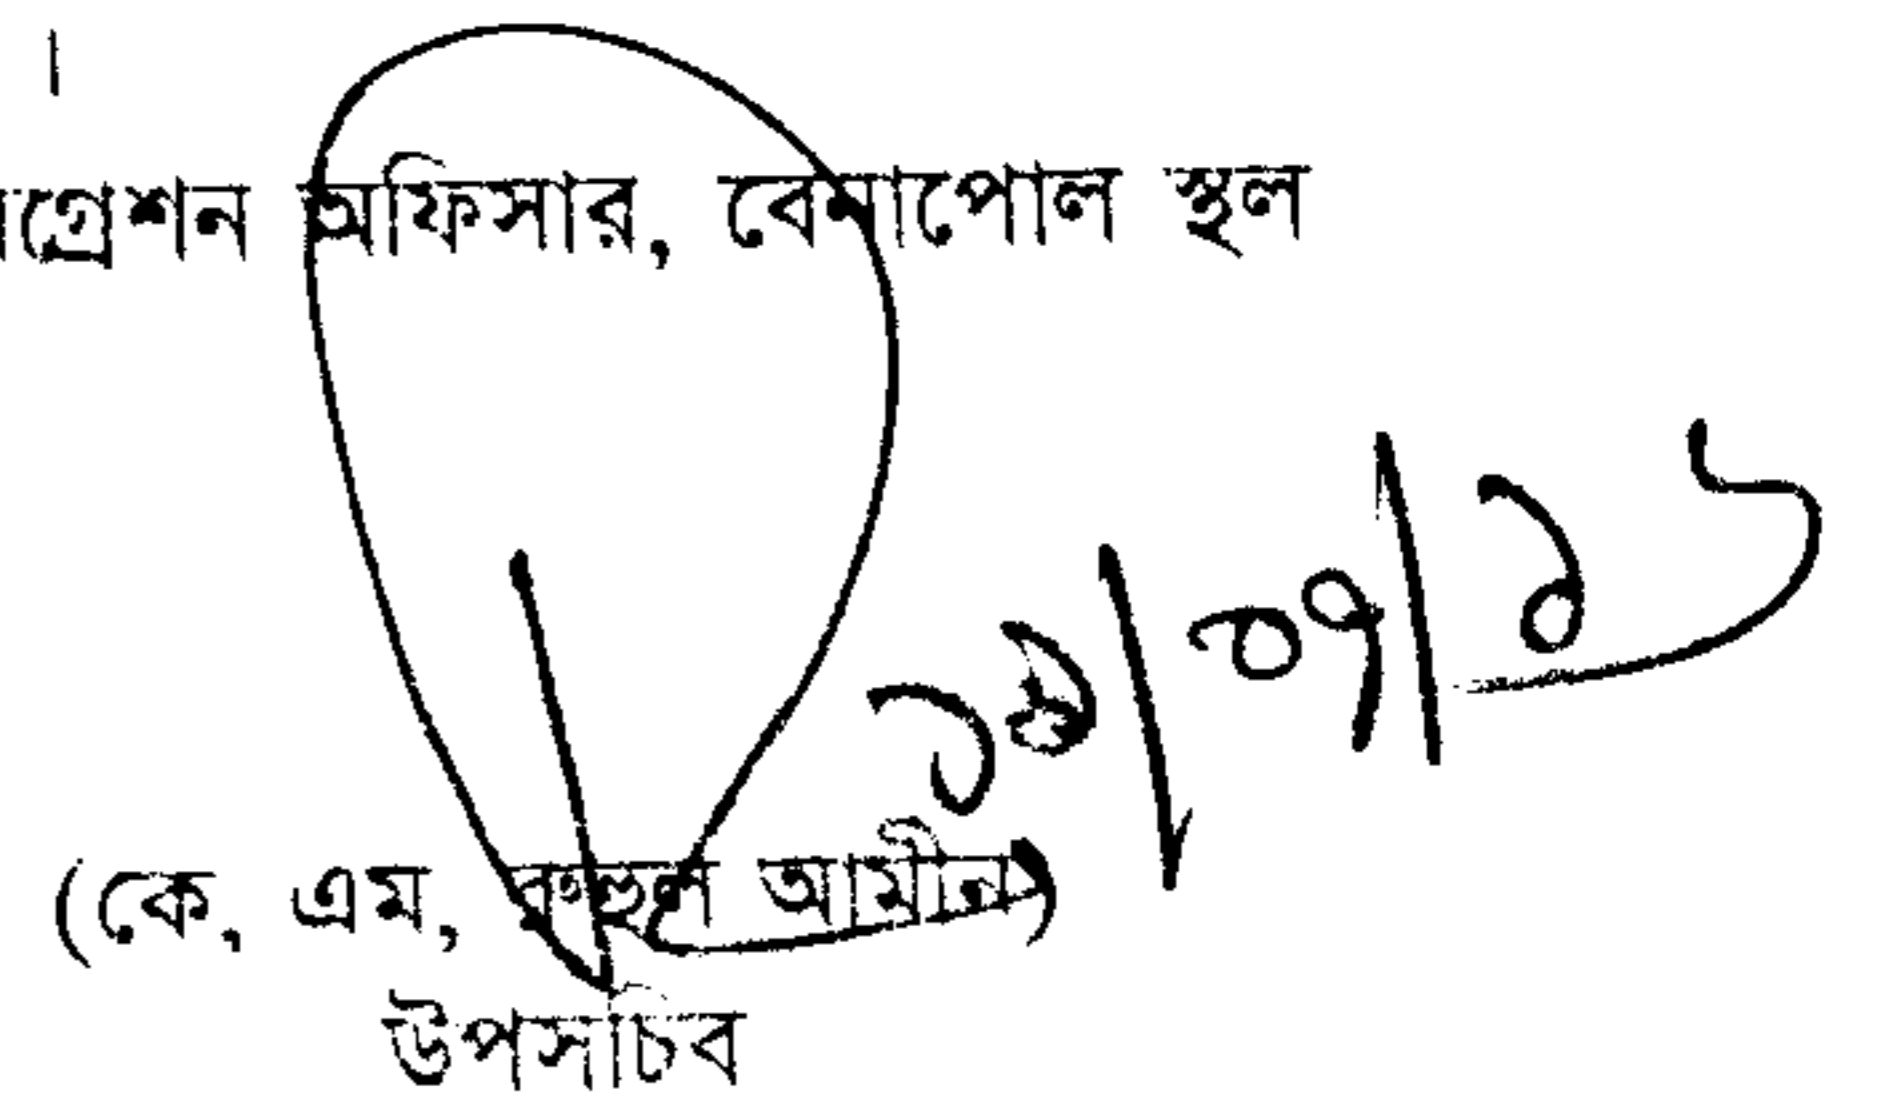 ।
গ্রেশন অফিসার, বেনাপোল স্থল
(কে, এম, রুহুল আমীন)
উপসচিব